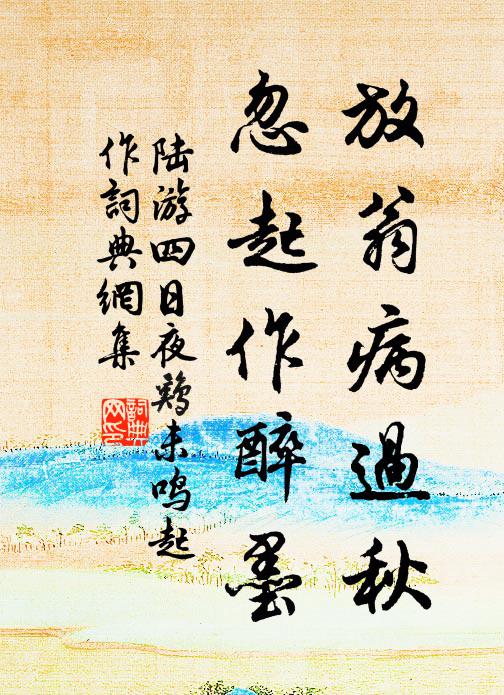 放翁病過秋
忽起作醉墨
陆游四日夜鶏未鸣起
作詞典網集
詞典網印